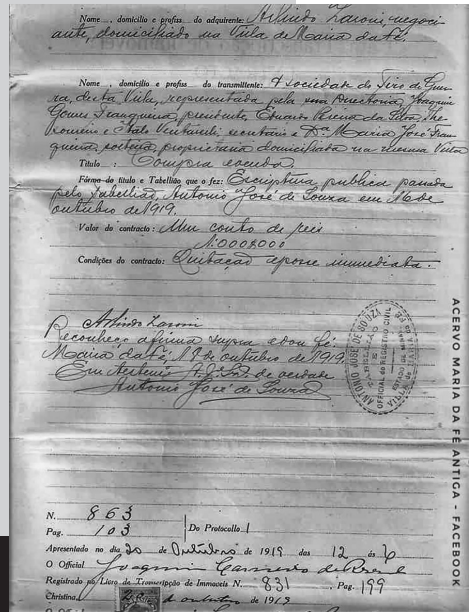 Nome , domicilio e profiss do adquirente: Arlindo Zaroni, negoci-
ante, domiciliado na Villa de Maria da Fé.
Nome , domicilio e profiss do transmittente: A sociedade do Tiro de Guer-
ra, desta Villa, representada pela sua Directoria, Joaquim
Gomes Franqueira, presidente, Eduardo Pereira da Silva, the-
soureiro e Italo secretario e Dª Maria José Fran-
queira, solteira, proprietaria domiciliada na mesma Villa
Titulo: Compra e venda
Fórma do titulo e Tabellião que o fez: Escriptura publica passada
pelo tabellião, Antonio José de Souza em 16 de
outubro de 1919.
Valor do contracto: Um conto de reis
1:000$000
Condições do contracto: Quitação e posse immediata.
Arlindo Zaroni
Reconheço a firma supra e dou fé.
Maria da Fé, 17 de outubro de 1919
Em de verdade
Antonio José de Souza
ANTONIO JOSÉ DE SOUZA
OFFICIAL do REGISTRO CIVIL
N. 863
Pag. 103 Do Protocollo 1
Apresentado no dia 20 de Outubro de 1919 das 12 ás 6
O Official Joaquim
Registrado no Livro de Transcripção de Immoveis N. 831 . Pag. 199
Christina, de outubro de 1919
O Official
ACERVO MARIA DA FÉ ANTIGA - FACEBOOK